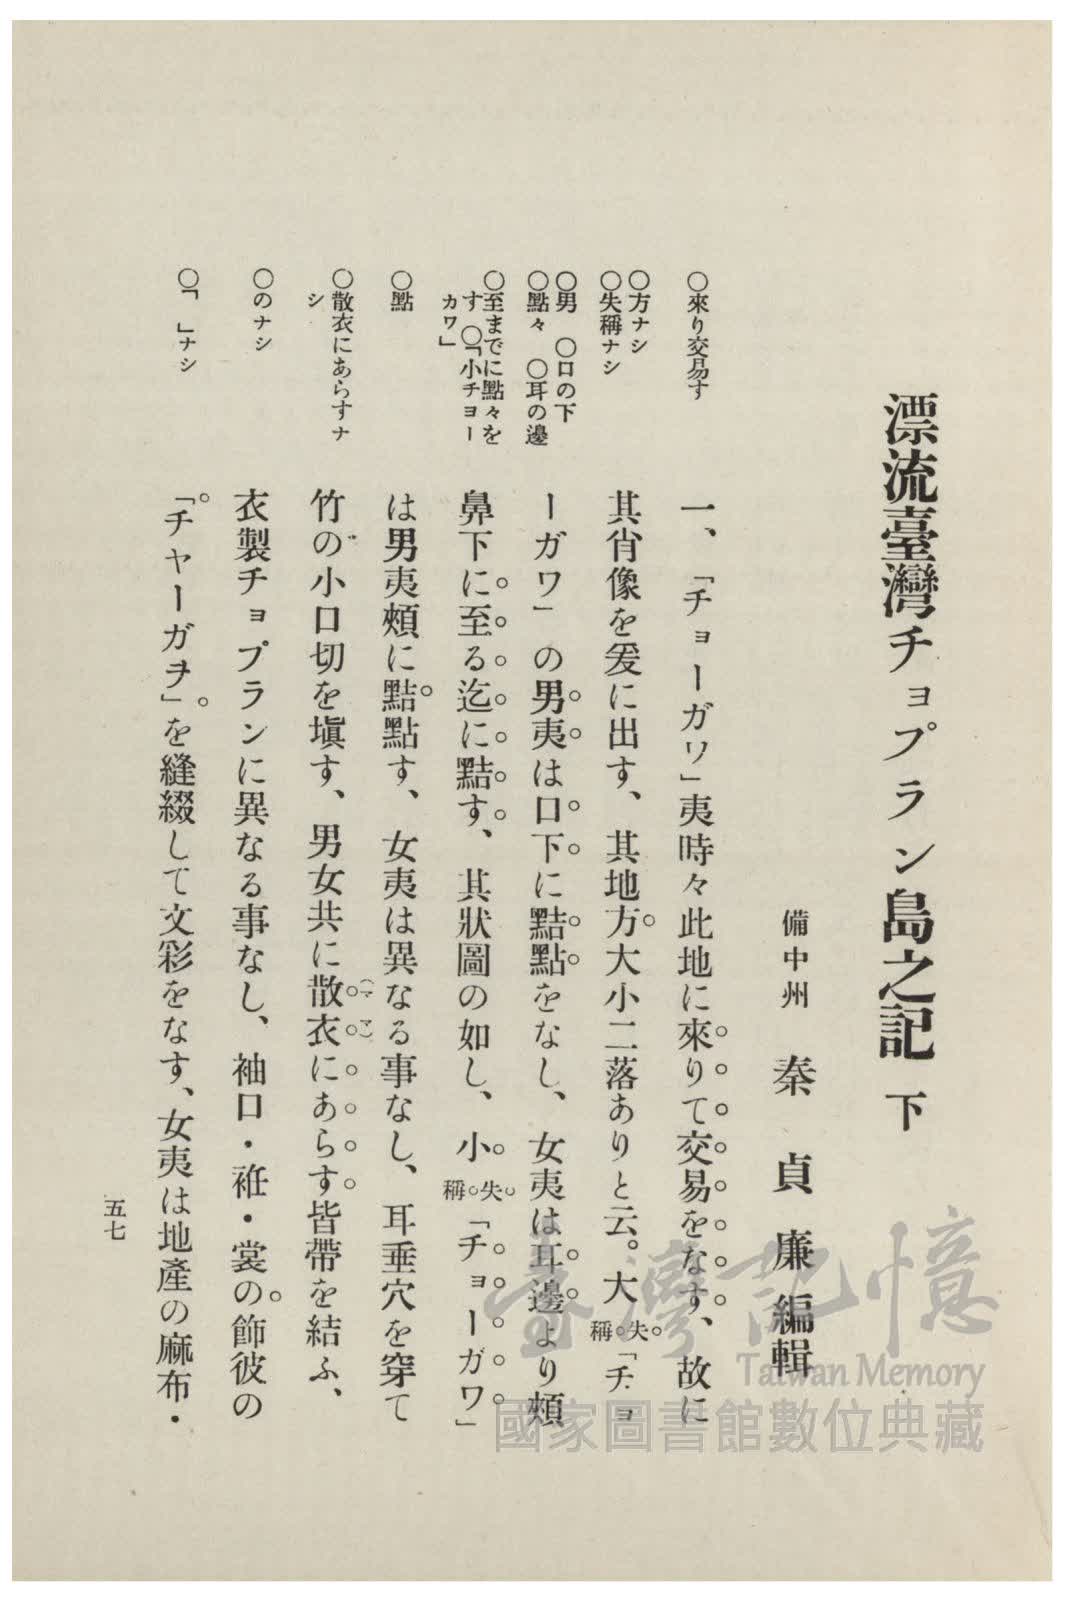 漂流臺灣チョプラン島之記 下
備中州 秦貞廉編輯
○來り交易す
○方ナシ
○失稱ナシ
○男 ○口の下
○點々 ○耳の邊
○至までに點々を
す ○「小チョー
カワ」
○點
○散衣にあらすナ
シ
○のナシ
○「 」ナシ
一、「チョーガワ」夷時々此地に來りて交易をなす、故に
其肖像を爰に出す、其地方大小二落ありと云。大失稱「チョ
ーガワ」の男夷は口下に㸃點をなし、女夷は耳邊より頰
鼻下に至る迄に㸃す、其狀圖の如し、小失稱「チョーガワ」
は男夷頰に㸃點す、女夷は異なる事なし、耳垂穴を穿て
竹の小口切を塡す、男女共に散衣(マヽ)にあらす皆帶を結ふ、
衣製チョプランに異なる事なし、袖口・袵・裳の飾彼の
「チャーガヲ」を縫綴して文彩をなす、女夷は地產の麻布・
五七
臺灣記憶
Taiwan Memory
國家圖書館數位典藏